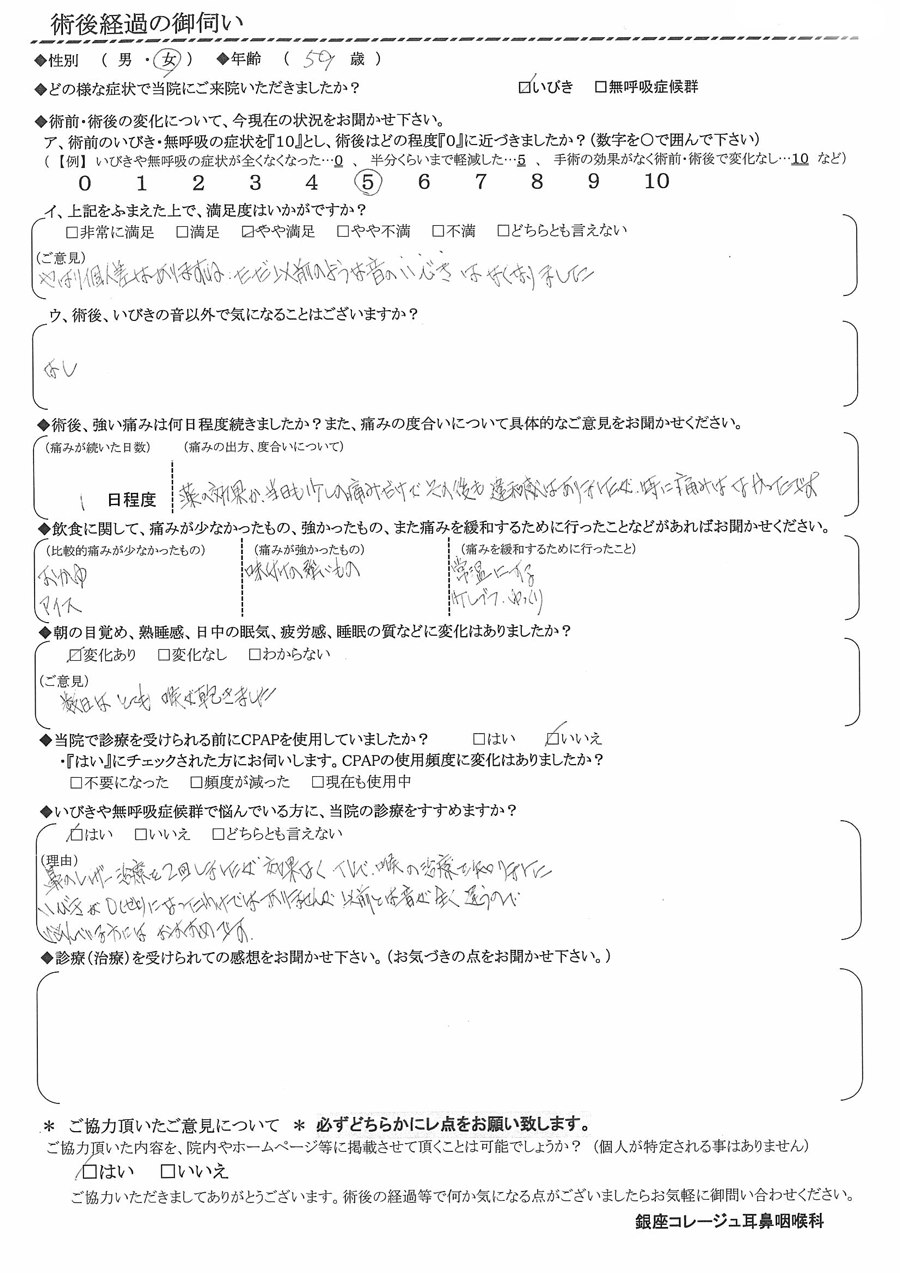 術後経過の御伺い
◆性別 （ 男 ・ 女 ） ◆年齢 （ 59 歳 ）
◆どの様な症状で当院にご来院いただきましたか？ ☑いびき □無呼吸症候群
◆術前・術後の変化について、今現在の状況をお聞かせ下さい。
ア、術前のいびき・無呼吸の症状を『10』とし、術後はどの程度『0』に近づきましたか？（数字を〇で囲んで下さい）
（【例】いびきや無呼吸の症状が全くなくなった…0 、 半分くらいまで軽減した…5 、 手術の効果がなく術前・術後で変化なし…10 など）
0 1 2 3 4 5 6 7 8 9 10
イ、上記をふまえた上で、満足度はいかがですか？
□非常に満足 □満足 ☑やや満足 □やや不満 □不満 □どちらとも言えない
（ご意見）
やはり個人差はありますね。ただ以前のような音のいびきはなくなりました
ウ、術後、いびきの音以外で気になることはございますか？
なし
◆術後、強い痛みは何日程度続きましたか？また、痛みの度合いについて具体的なご意見をお聞かせください。
（痛みが続いた日数） （痛みの出方、度合いについて）
1 日程度 薬の効果か、当日も少しの痛みだけで その後も違和感はありましたが、特に痛みはなかったです
◆飲食に関して、痛みが少なかったもの、強かったもの、また痛みを緩和するために行ったことなどがあればお聞かせください。
（比較的痛みが少なかったもの） （痛みが強かったもの） （痛みを緩和するために行ったこと）
おかゆ 味付けの強いもの 常温にする
アイス 少しずつ、ゆっくり
◆朝の目覚め、熟睡感、日中の眠気、疲労感、睡眠の質などに変化はありましたか？
☑変化あり □変化なし □わからない
（ご意見）
数日は とても 喉が乾きました
◆当院で診療を受けられる前にCPAPを使用していましたか？ □はい ☑いいえ
・『はい』にチェックされた方にお伺いします。CPAPの使用頻度に変化はありましたか？
□不要になった □頻度が減った □現在も使用中
◆いびきや無呼吸症候群で悩んでいる方に、当院の診療をすすめますか？
☑はい □いいえ □どちらとも言えない
（理由）
鼻のレーザー治療を2回しましたが 効果なく 喉の治療を
いびきが0になったわけではありませんが 以前とは音が全く違うので
悩んでいる方には おすすめです。
◆診療（治療）を受けられての感想をお聞かせ下さい。（お気づきの点をお聞かせ下さい。）
＊ ご協力頂いたご意見について ＊ 必ずどちらかにレ点をお願い致します。
ご協力頂いた内容を、院内やホームページ等に掲載させて頂くことは可能でしょうか？ （個人が特定される事はありません）
☑はい □いいえ
ご協力いただきましてありがとうございます。術後の経過等で何か気になる点がございましたらお気軽に御問い合わせください。
銀座コレージュ耳鼻咽喉科